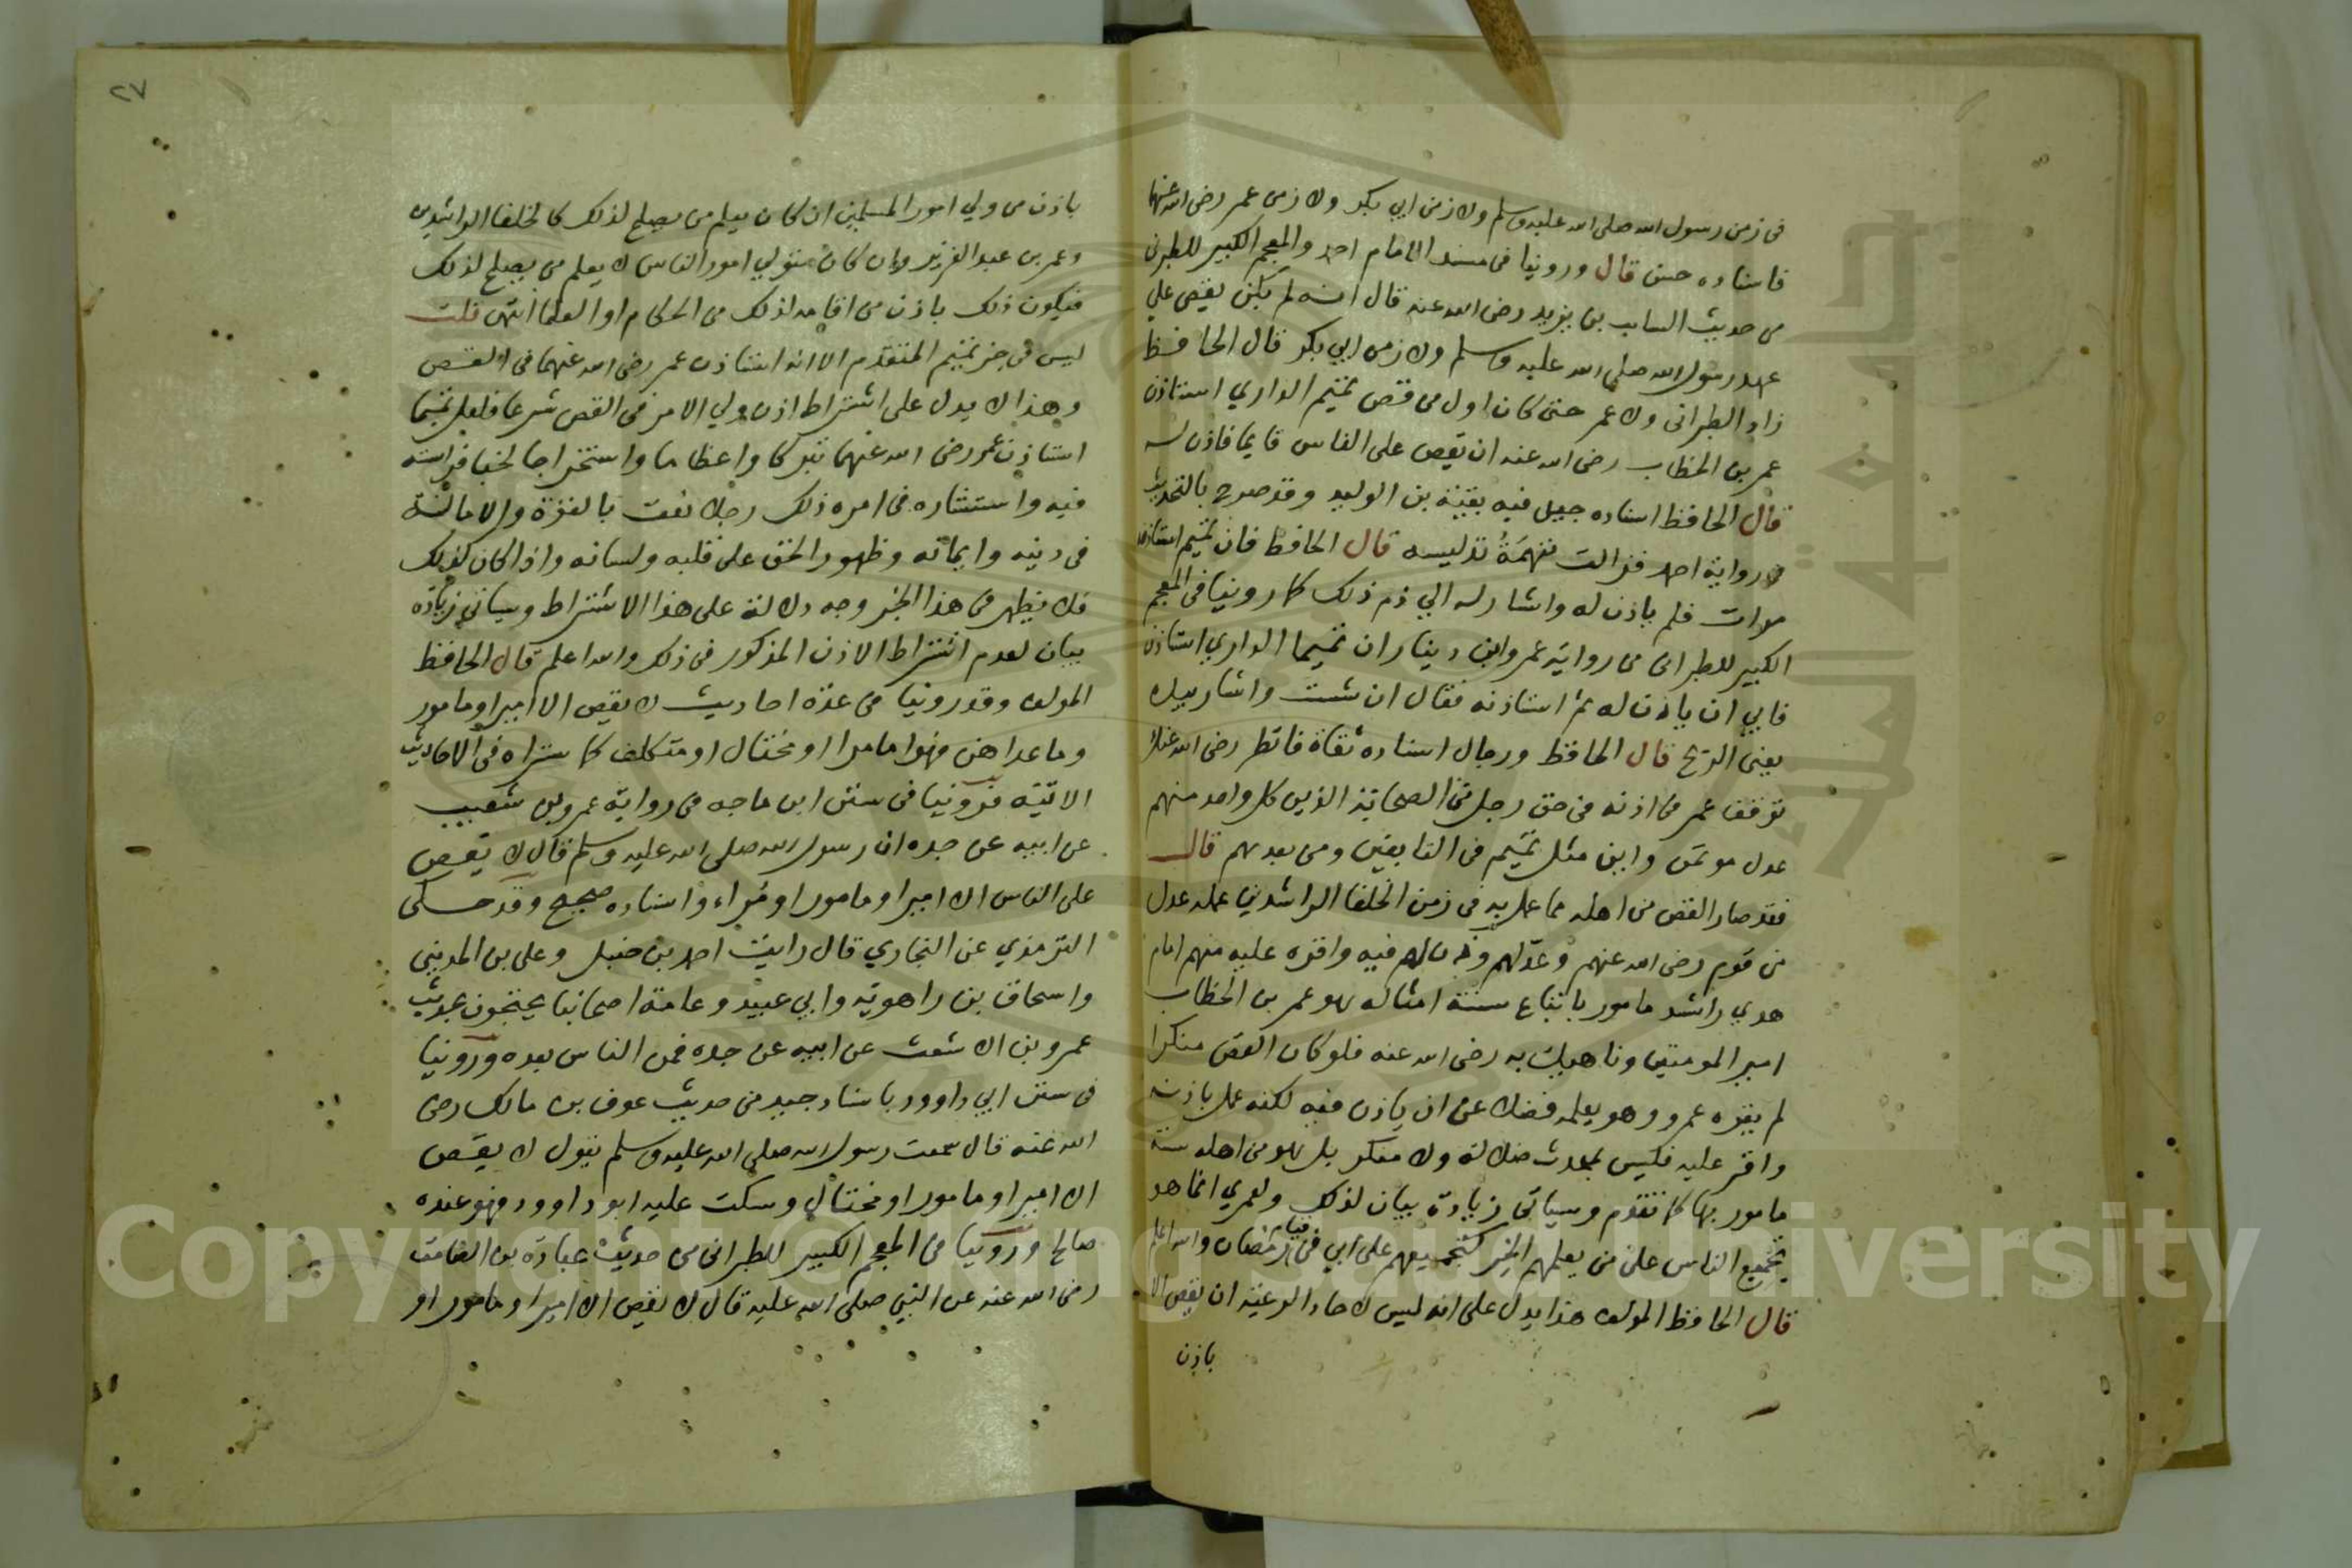 في زمن رسول الله صلى الله عليه وسلم ولا زمن ابي بكر ولا زمن عمر رضي الله عنهما
فاسناده حسن قال وروينا في مسند الامام احمد والمعجم الكبير للطبراني
من حديث السايب بن يزيد رضي الله عنه قال انه لم يكن يقص علي
عهد رسول الله صلى الله عليه وسلم ولا زمن ابي بكر قال الحافظ
زاد الطبراني ولا عمر حتى كان اول من قص تميم الداري استاذن
عمر بن الخطاب رضي الله عنه ان يقص على الناس قايما فاذن له
قال الحافظ اسناده جيد فيه بقية بن الوليد وقد صرح بالتحديث
في رواية احمد فزالت تهمة تدليسه قال الحافظ فان تميم استاذنه
مرات فلم ياذن له واشار له الي ذم ذلك كما روينا في المعجم
الكبير للطبراني من رواية عمرو ابن دينار ان تميما الداري استاذن
فابي ان ياذن له ثم استاذنه فقال ان شئت واشار بيده
يعني الذبح قال الحافظ ورجال اسناده ثقاة فانظر رضي الله عنك
توقف عمر في اذنه في حق رجل من الصحابة الذين كل واحد منهم
عدل موتمن واين مثل تميم في التابعين ومن بعدهم قال
فقد صار القص من اهله مما عمل به في زمن الخلفا الراشدين عمله عدل
من قوم رضي الله عنهم وعدلهم واذن لهم فيه واقره عليه منهم امام
هدي راشد مامور باتباع سنة امثاله هو عمر بن الخطاب
امير المومنين وناهيك به رضي الله عنه فلو كان القص منكرا
لم يقره عمر وهو يعلمه فضلا عن ان ياذن فيه لكنه عمل باذنه
واقر عليه فليس بمحدث ضلالة ولا منكر بل هو من اهله سنة
مامور بها كما تقدم وسياتي زيادة بيان لذلك ولعمري انما هو
تجميع الناس على من يعلمهم الخير كتجميعهم على ابي في قيام رمضان والله اعلم
قال الحافظ المولف هذا يدل على انه ليس لاحاد الرعية ان يقص الا
باذن
٢٧
باذن من ولي امور المسلمين ان كان يعلم من يصلح لذلك كالخلفا الراشدين
وعمر بن عبد العزيز وان كان متولي امور الناس لا يعلم من يصلح لذلك
فيكون ذلك باذن من اقامه لذلك من الحكام او العلما انتهى قلت
ليس في خبر تميم المتقدم الا انه استاذن عمر رضي الله عنهما في القصص
وهذا لا يدل على اشتراط اذن ولي الامر في القص شرعا فلعل تميما
استاذن عمر رضي الله عنهما تبركا واعظاما واستخراجا لخفيا فراسته
فيه واستشاره في امره ذلك رجلا نعت بالقوة والامانة
في دينه وايمانه وظهور الحق على قلبه ولسانه واذا كان كذلك
فلا يظهر في هذا الخبر وجه دلالة على هذا الاشتراط وسياتي زيادة
بيان لعدم اشتراط الاذن المذكور في ذلك والله اعلم قال الحافظ
المولف وقد روينا في عدة احاديث لا يقص الا امير او مامور
وما عدا هن فهو اما مرا او مختال او متكلف كما ستراه في الاحاديث
الاتية فروينا في سنن ابن ماجه من رواية عمرو بن شعيب
عن ابيه عن جده ان رسول الله صلى الله عليه وسلم قال لا يقص
على الناس الا امير او مامور او مراء واسناده صحيح وقد حكى
الترمذي عن البخاري قال رايت احمد بن حنبل وعلي بن المديني
واسحاق بن راهويه وابي عبيد وعامة اصحابنا يحتجون بحديث
عمرو بن الاشعث عن ابيه عن جده فمن الناس بعده وروينا
في سنن ابي داوود باسناد جيد من حديث عوف بن مالك رضي
الله عنه قال سمعت رسول الله صلى الله عليه وسلم يقول لا يقص
الا امير او مامور او مختال وسكت عليه ابو داوود فهو عنده
صالح وروينا في المعجم الكبير للطبراني من حديث عبادة بن الصامت
رضي الله عنه عن النبي صلى الله عليه قال لا يقص الا امير او مامور او
جامعة الملك
Copyright © King Saud University